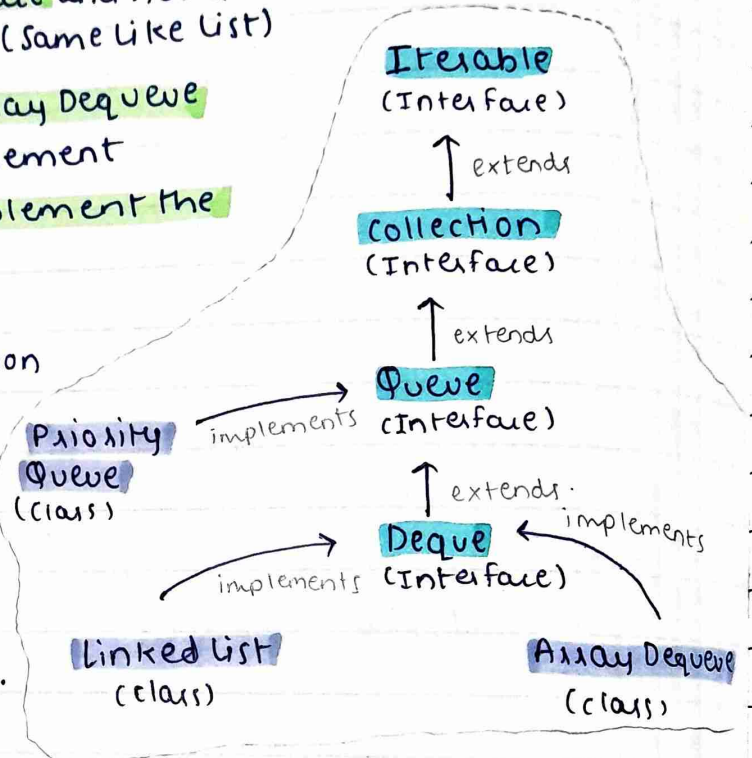 (Same Like List)
ay Dequeue
ement
lement the
on
Iterable
(Interface)
extends
Collection
(Interface)
extends
Queue
(Interface)
implements
Priority
Queue
(Class)
extends.
implements
Deque
(Interface)
implements
Linked List
(Class)
Array Dequeue
(Class)